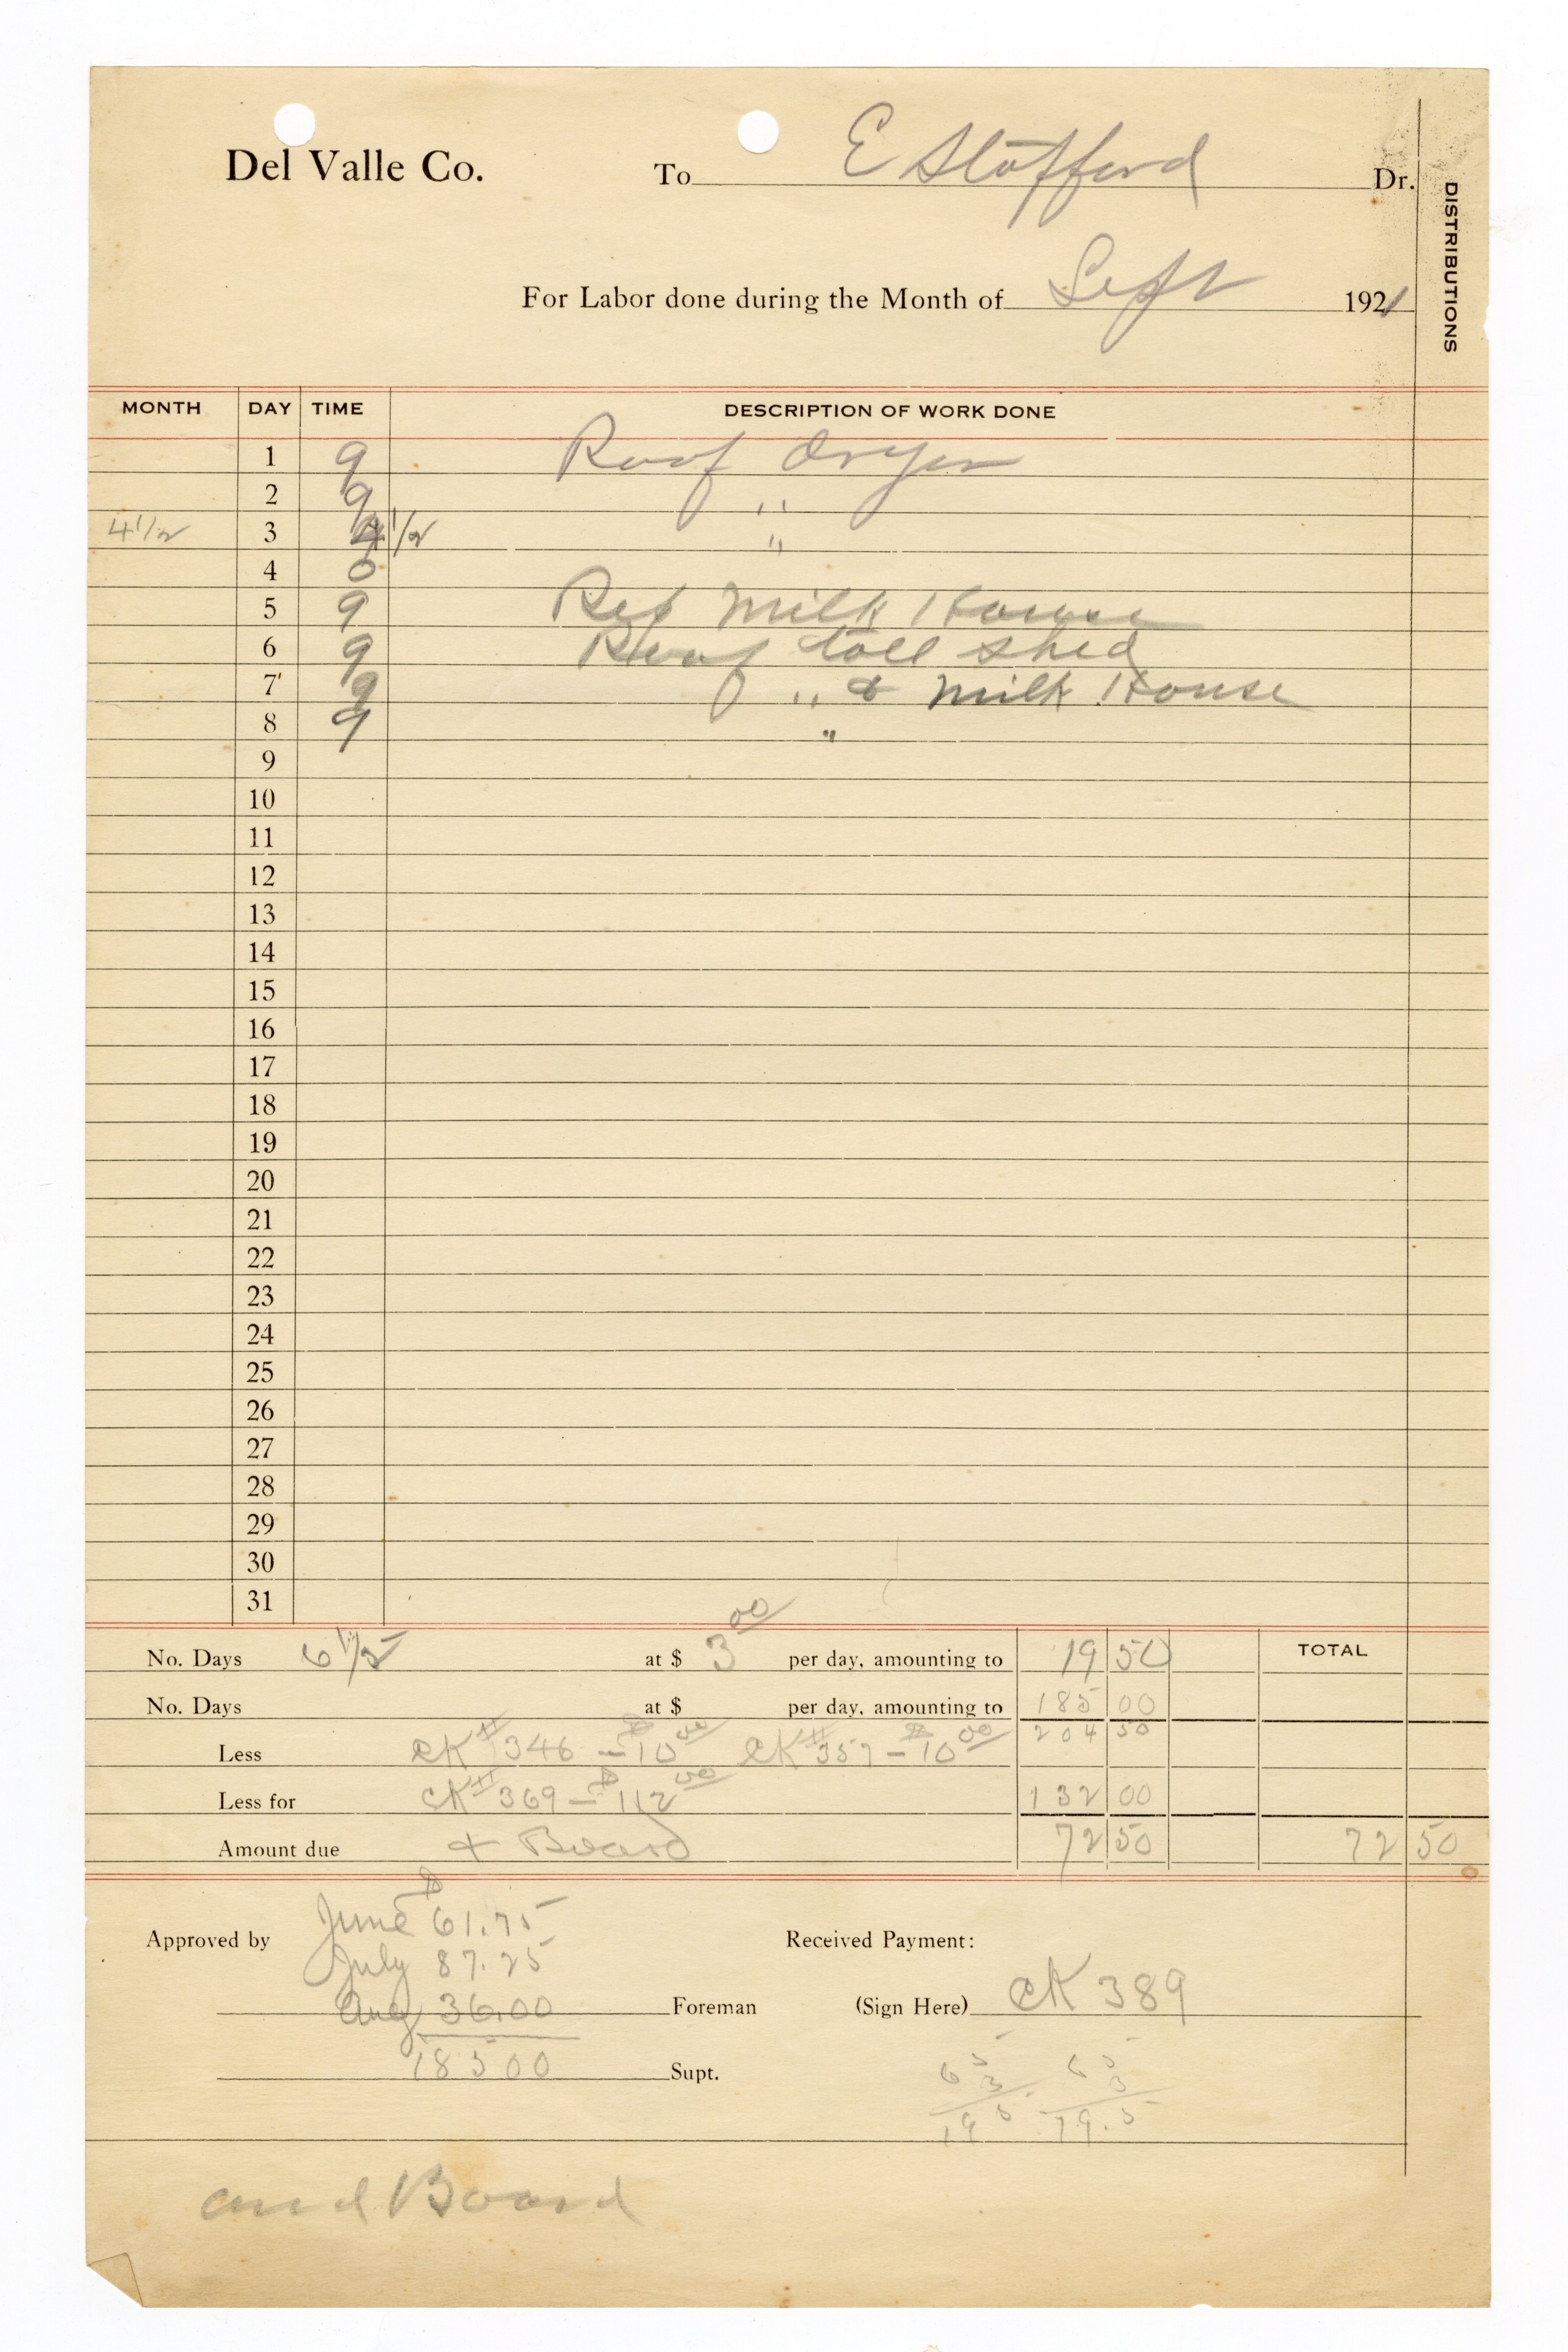 Del Valle Co. To E Stofford Dr.
DISTRIBUTIONS
For Labor done during the Month of Sept 1921
MONTH DAY TIME DESCRIPTION OF WORK DONE
1 9 Roof dryer
2 9 "
4 1/2 3 4 1/2 "
4 0
5 9 Rep Milk House
6 9 Roof tool shed
7 9 " & Milk House
8 9 "
9
10
11
12
13
14
15
16
17
18
19
20
21
22
23
24
25
26
27
28
29
30
31
No. Days 6 1/2 at $ 3 00 per day, amounting to 19 50 TOTAL
No. Days at $ per day, amounting to 185 00
204 50
Less CK # 346 - $10 00 CK # 357 - $10 00
Less for CK # 369 - $112 00 132 00
Amount due + Board 72 50 72 50
June $61.75
Approved by Received Payment:
July 87.25
Aug 36.00 Foreman (Sign Here) CK 389
185 00 Supt.
6 5 6 5
3 3
19 5 19.5
and Board